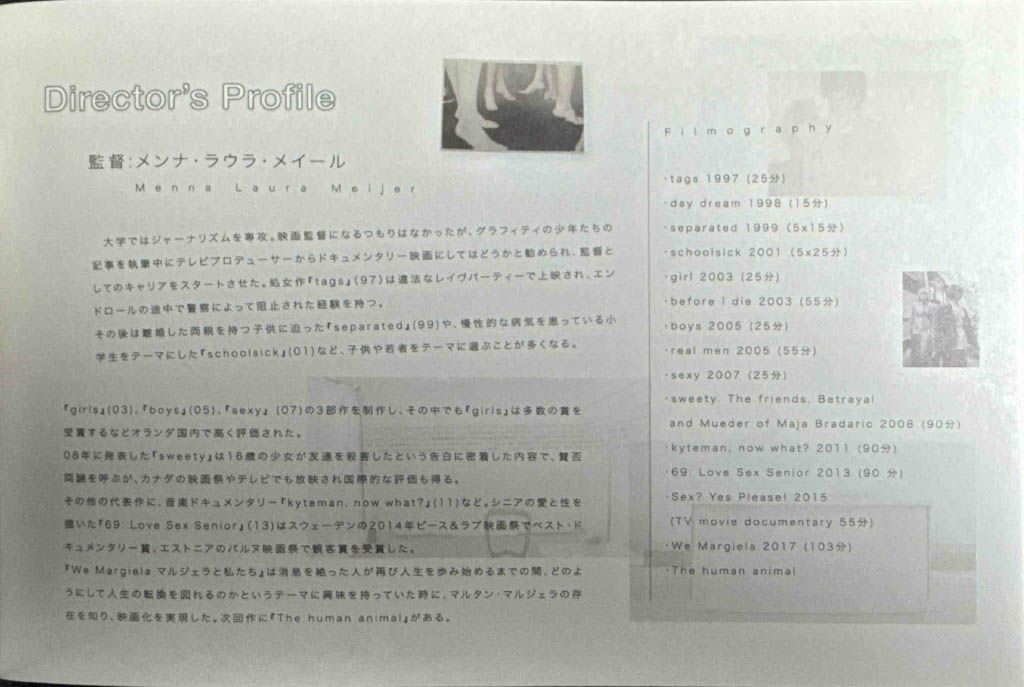 Director's Profile
監督:メンナ・ラウラ・メイール
Menna Laura Meijer
大学ではジャーナリズムを専攻。映画監督になるつもりはなかったが、グラフィティの少年たちの
記事を執筆中にテレビプロデューサーからドキュメンタリー映画にしてはどうかと勧められ、監督と
してのキャリアをスタートさせた。処女作『tags』(97)は違法なレイヴパーティーで上映され、エン
ドロールの途中で警察によって阻止された経験を持つ。
その後は離婚した両親を持つ子供に迫った『separated』(99)や、慢性的な病気を患っている小
学生をテーマにした『schoolsick』(01)など、子供や若者をテーマに選ぶことが多くなる。
『girls』(03)、『boys』(05)、『sexy』 (07)の3部作を制作し、その中でも『girls』は多数の賞を
受賞するなどオランダ国内で高く評価された。
08年に発表した『sweety』は16歳の少女が友達を殺害したという告白に密着した内容で、賛否
両論を呼ぶが、カナダの映画祭やテレビでも放映され国際的な評価も得る。
その他の代表作に、音楽ドキュメンタリー『kyteman, now what?』(11)など。シニアの愛と性を
描いた『69: Love Sex Senior』(13)はスウェーデンの2014年ピース&ラブ映画祭でベスト・ド
キュメンタリー賞、エストニアのパルヌ映画祭で観客賞を受賞した。
『We Margiela マルジェラと私たち』は消息を絶った人が再び人生を歩み始めるまでの間、どのよ
うにして人生の転換を図れるのかというテーマに興味を持っていた時に、マルタン・マルジェラの存
在を知り、映画化を実現した。次回作に『The human animal』がある。
Filmography
・tags 1997 (25分)
・day dream 1998 (15分)
・separated 1999 (5x15分)
・schoolsick 2001 (5x25分)
・girl 2003 (25分)
・before I die 2003 (55分)
・boys 2005 (25分)
・real men 2005 (55分)
・sexy 2007 (25分)
・sweety. The friends, Betrayal
and Mueder of Maja Bradaric 2008 (90分)
・kyteman, now what? 2011 (90分)
・69: Love Sex Senior 2013 (90 分)
・Sex? Yes Please! 2015
(TV movie documentary 55分)
・We Margiela 2017 (103分)
・The human animal